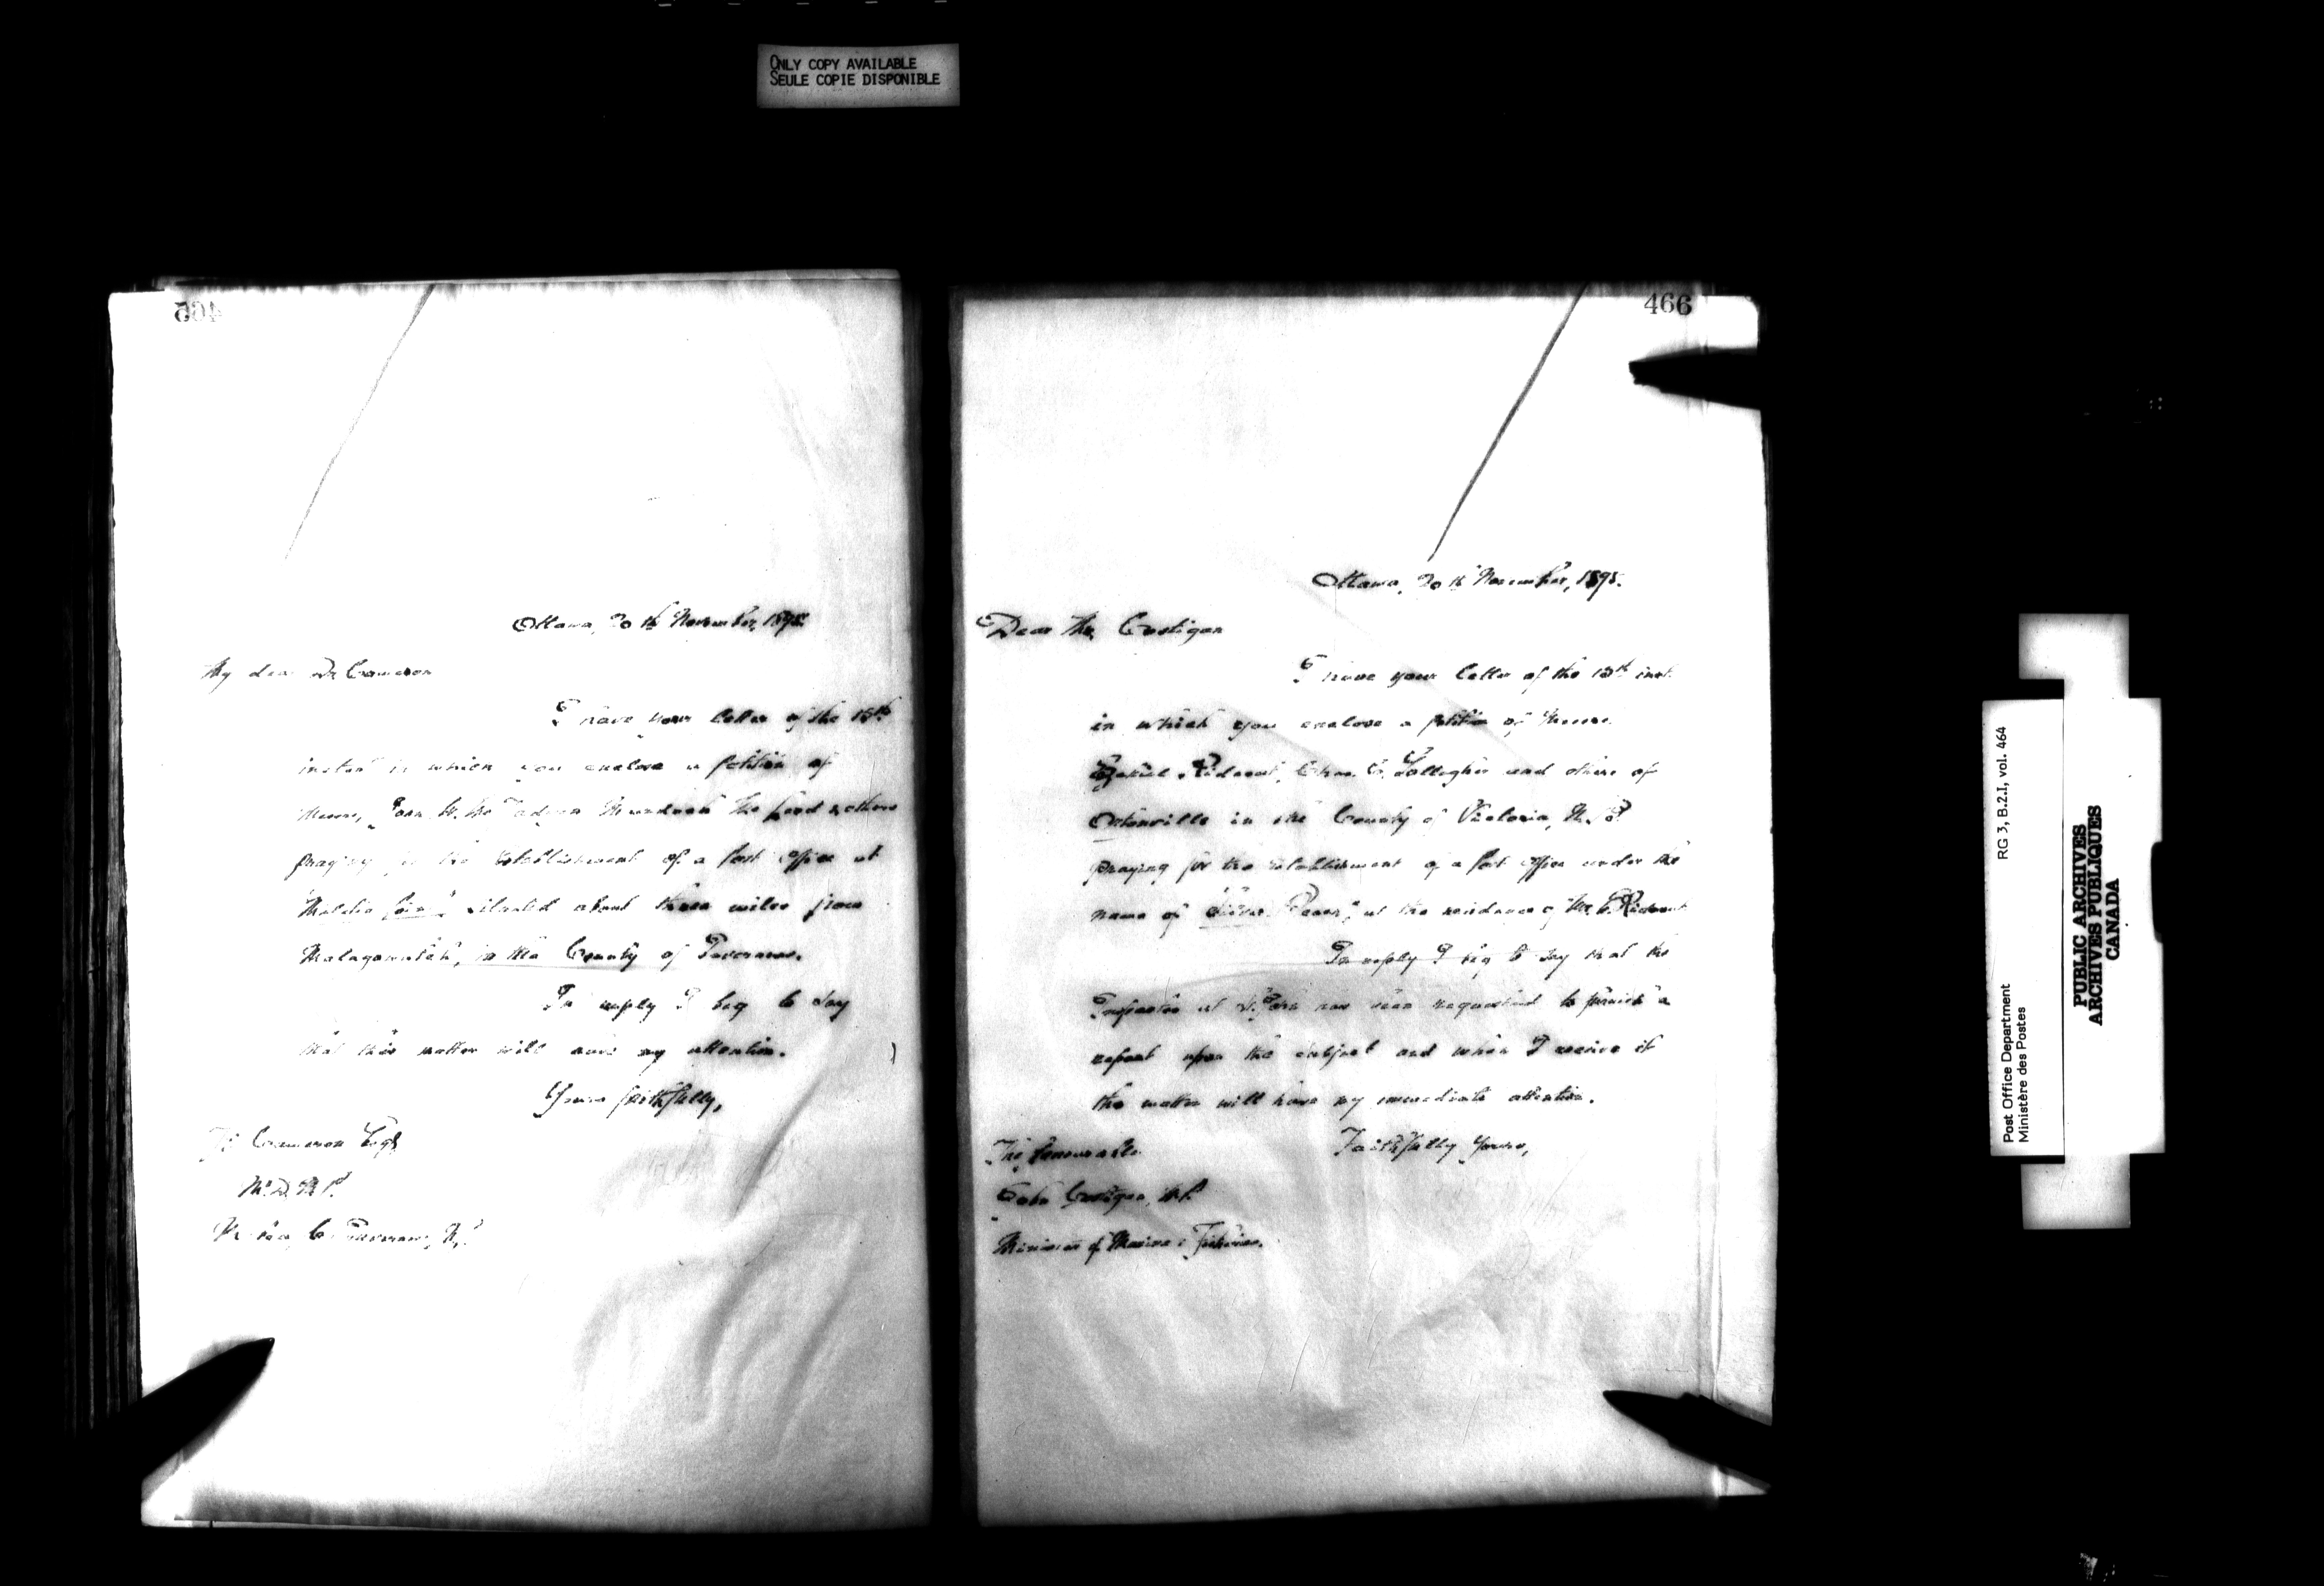 ONLY COPY AVAILABLE
SEULE COPIE DISPONIBLE
465
Ottawa, 20th November, 1895.
My dear Dr Cameron
I have your letter of the 15th
instant in which you enclose a petition of
Messrs, John Murdock & others
praying for the establishment of a Post Office at
situated about three miles from
Malagawatch, in the County of Inverness.
In reply I beg to say
that this matter will have my attention.
Yours faithfully,
Cameron Esqr
M.D. M.P.
Inverness, N.S.
466
Ottawa, 20th November, 1895.
Dear Mr. Costigan
I have your letter of the 18th inst.
in which you enclose a petition of Messrs.
Rideout, Chas. Gallagher and others of
Ortonville in the County of Victoria, N.B.
praying for the establishment of a Post Office under the
name of at the residence of Mr. E. Rideout
In reply I beg to say that the
Inspector at St. John has been requested to furnish a
report upon the subject and when I receive it
the matter will have my immediate attention.
Faithfully Yours,
The Honourable
John Costigan, M.P.
Minister of Marine & Fisheries.
Post Office Department
Ministère des Postes
RG 3, B.2.I, vol. 464
PUBLIC ARCHIVES
ARCHIVES PUBLIQUES
CANADA